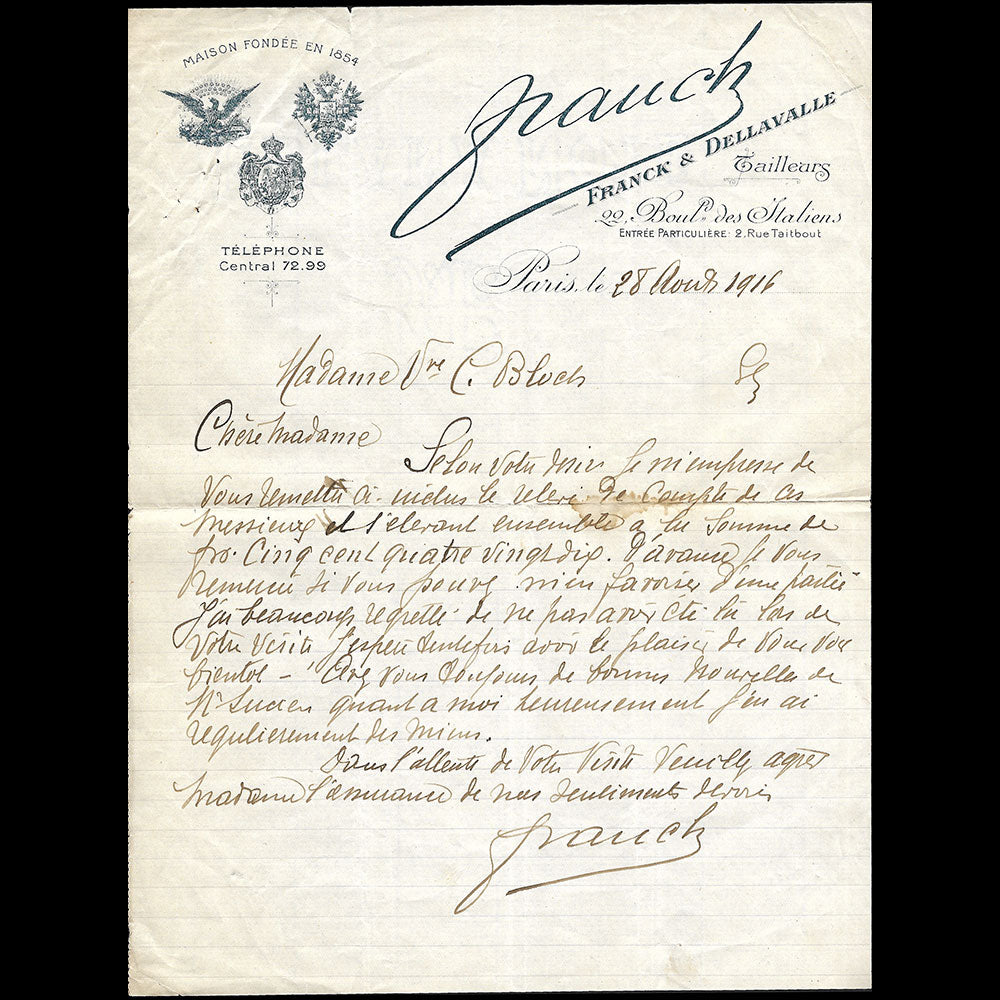 MAISON FONDÉE EN 1854
Franck
FRANCK & DELLAVALLE
Tailleurs
22, Boul.d des Italiens
ENTRÉE PARTICULIÈRE: 2, Rue Taitbout
TÉLÉPHONE
Central 72.99
Paris, le 28 Aout 1916
Madame Vve C. Bloch
Chère Madame
Selon votre désir je m'empresse de
Vous remettre ci-inclus le relevé de Compte de ces
Messieurs et s'élevant ensemble à la somme de
frs. Cinq cent quatre vingt dix. D'avance je vous
remercie si vous pouvez m'en favoriser d'une partie
J'ai beaucoup regretté de ne pas avoir été là lors de
votre visite J'espère toutefois avoir le plaisir de vous voir
bientot - Avez vous toujours de bonnes nouvelles de
Mr Lucien quant a moi heureusement j'en ai
regulierement des miens.
Dans l'attente de votre visite Veuillez agréer
Madame l'assurance de nos sentiments dévoués
Franck